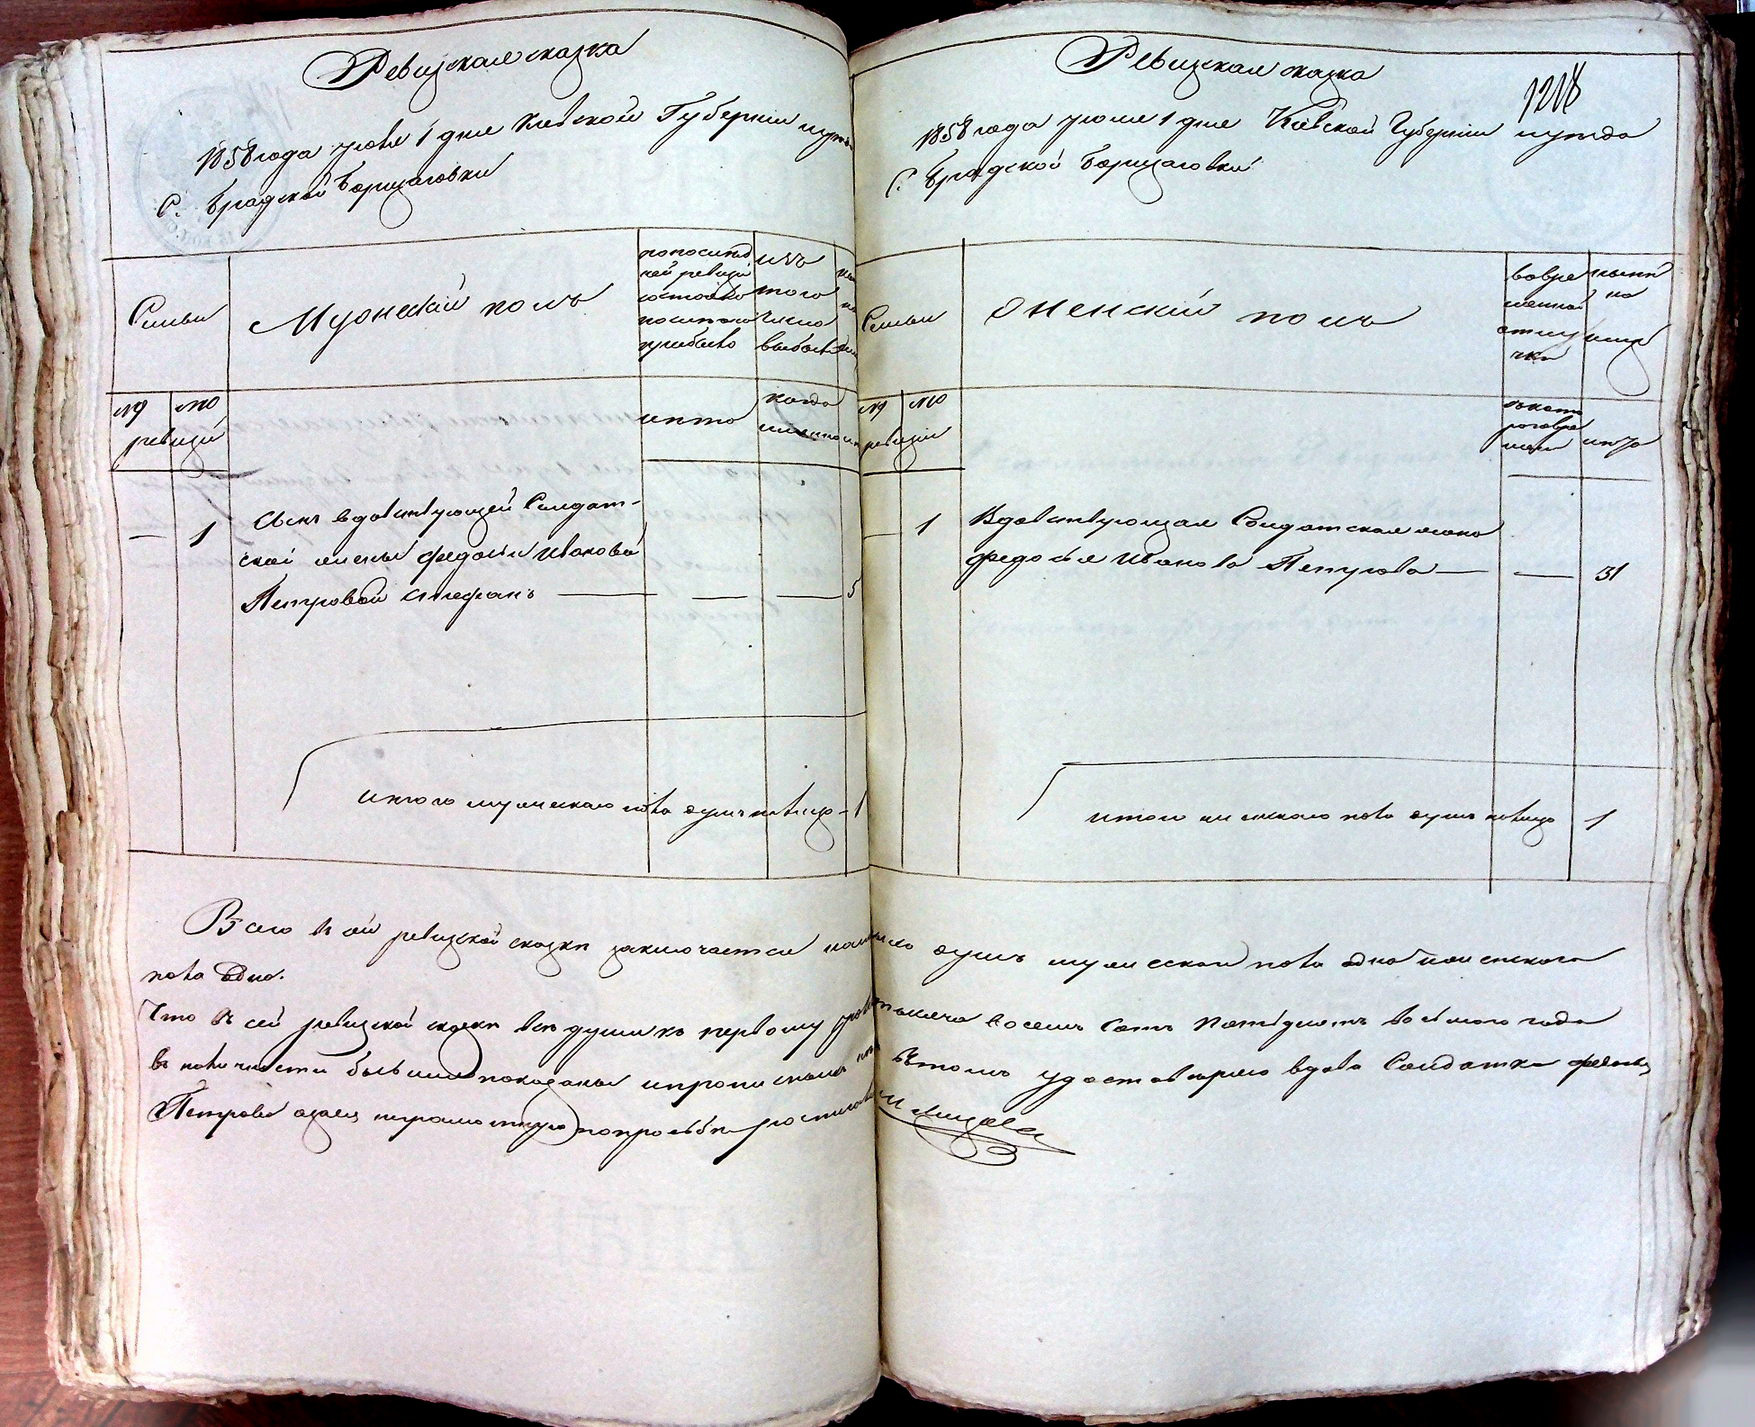 Ревизская сказка
1858 года июня 1 дня Киевской Губернии
С. Братской Борщаговки
Семьи
Мужеский полъ
по последней ревизии состояло и после того прибыло
изъ того числа выбыло
№ №
ревизіи
лета
когда
именно
1
Сынъ вдовствующей Солдат-
ской жены Федосіи Ивановой
Петровой Стефанъ — — — 5
Итого мужескаго пола душъ налицо – 1
Ревизская сказка
1218
1858 года июня 1 дня Кіевской Губерніи
С. Братской Борщаговки
Семьи
Женскій полъ
во временной отлучке
ныне на лицо
№ №
ревизіи
съ котораго времени
лета
1
Вдовствующая Солдатская жена
Федосія Иванова Петрова — — 31
Итого женскаго пола душъ налицо 1
Всего въ сей ревизской сказки заключается налицо душъ мужескаго пола одна и женскаго
пола одна.
Что въ сей ревизской сказки все души къ первому июня тысяча восемь сотъ пятдесятъ восьмого года
въ наличности бывшие показаны и прописаны въ томъ удостоверяю вдова Солдатка Федосія
Петрова а за ея неграмотную по просьбе росписался